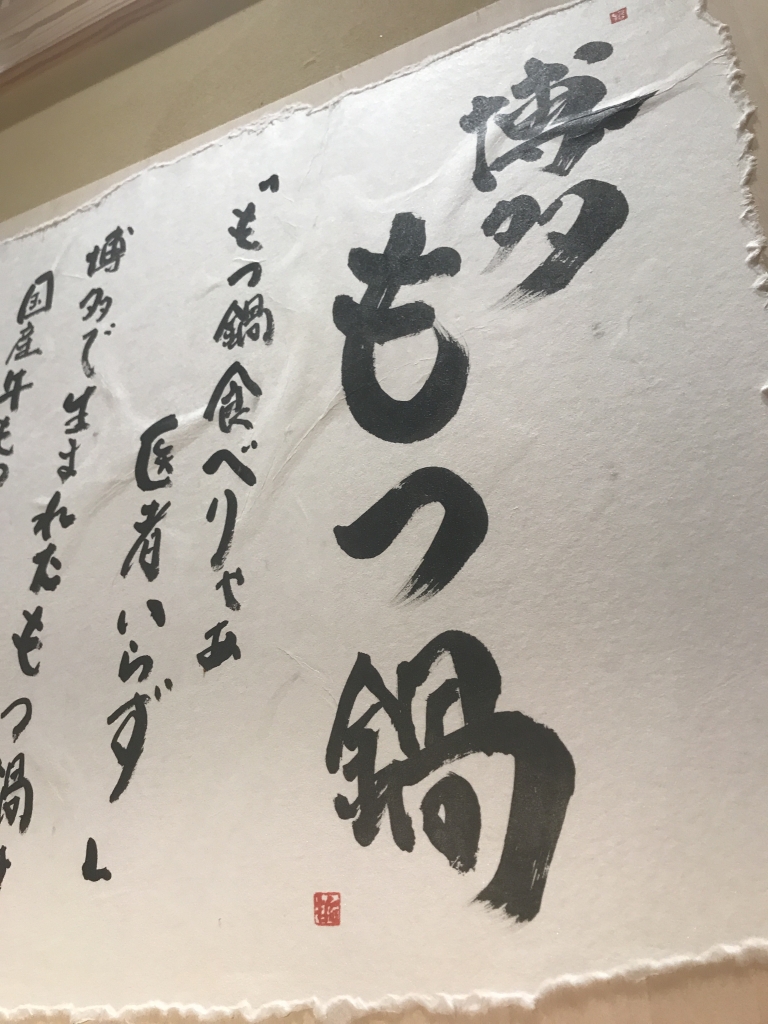 博多
もつ鍋
「もつ鍋食べりゃあ
医者いらず」
博多で生まれたもつ鍋は
国産牛もつ